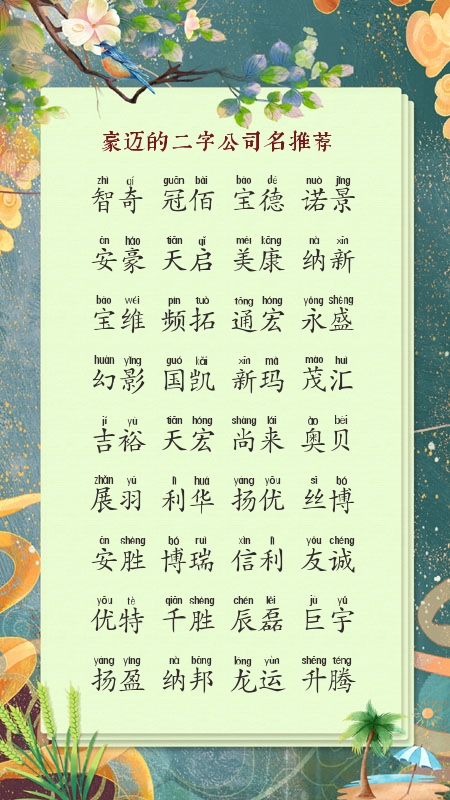 豪迈的二字公司名推荐
zhì qí guān bǎi bǎo dé nuò jǐng
智奇 冠佰 宝德 诺景
ān háo tiān qǐ měi kāng nà xīn
安豪 天启 美康 纳新
bǎo wéi pín tuò tōng hóng yǒng shèng
宝维 频拓 通宏 永盛
huàn yǐng guó kǎi xīn mǎ mào huì
幻影 国凯 新玛 茂汇
jí yù tiān hóng shàng lái ào bèi
吉裕 天宏 尚来 奥贝
zhǎn yǔ lì huá yáng yōu sī bó
展羽 利华 扬优 丝博
ān shèng bó ruì xìn lì yǒu chéng
安胜 博瑞 信利 友诚
yōu tè qiān shèng chén lěi jù yǔ
优特 千胜 辰磊 巨宇
yáng yíng nà bāng lóng yùn shēng téng
扬盈 纳邦 龙运 升腾